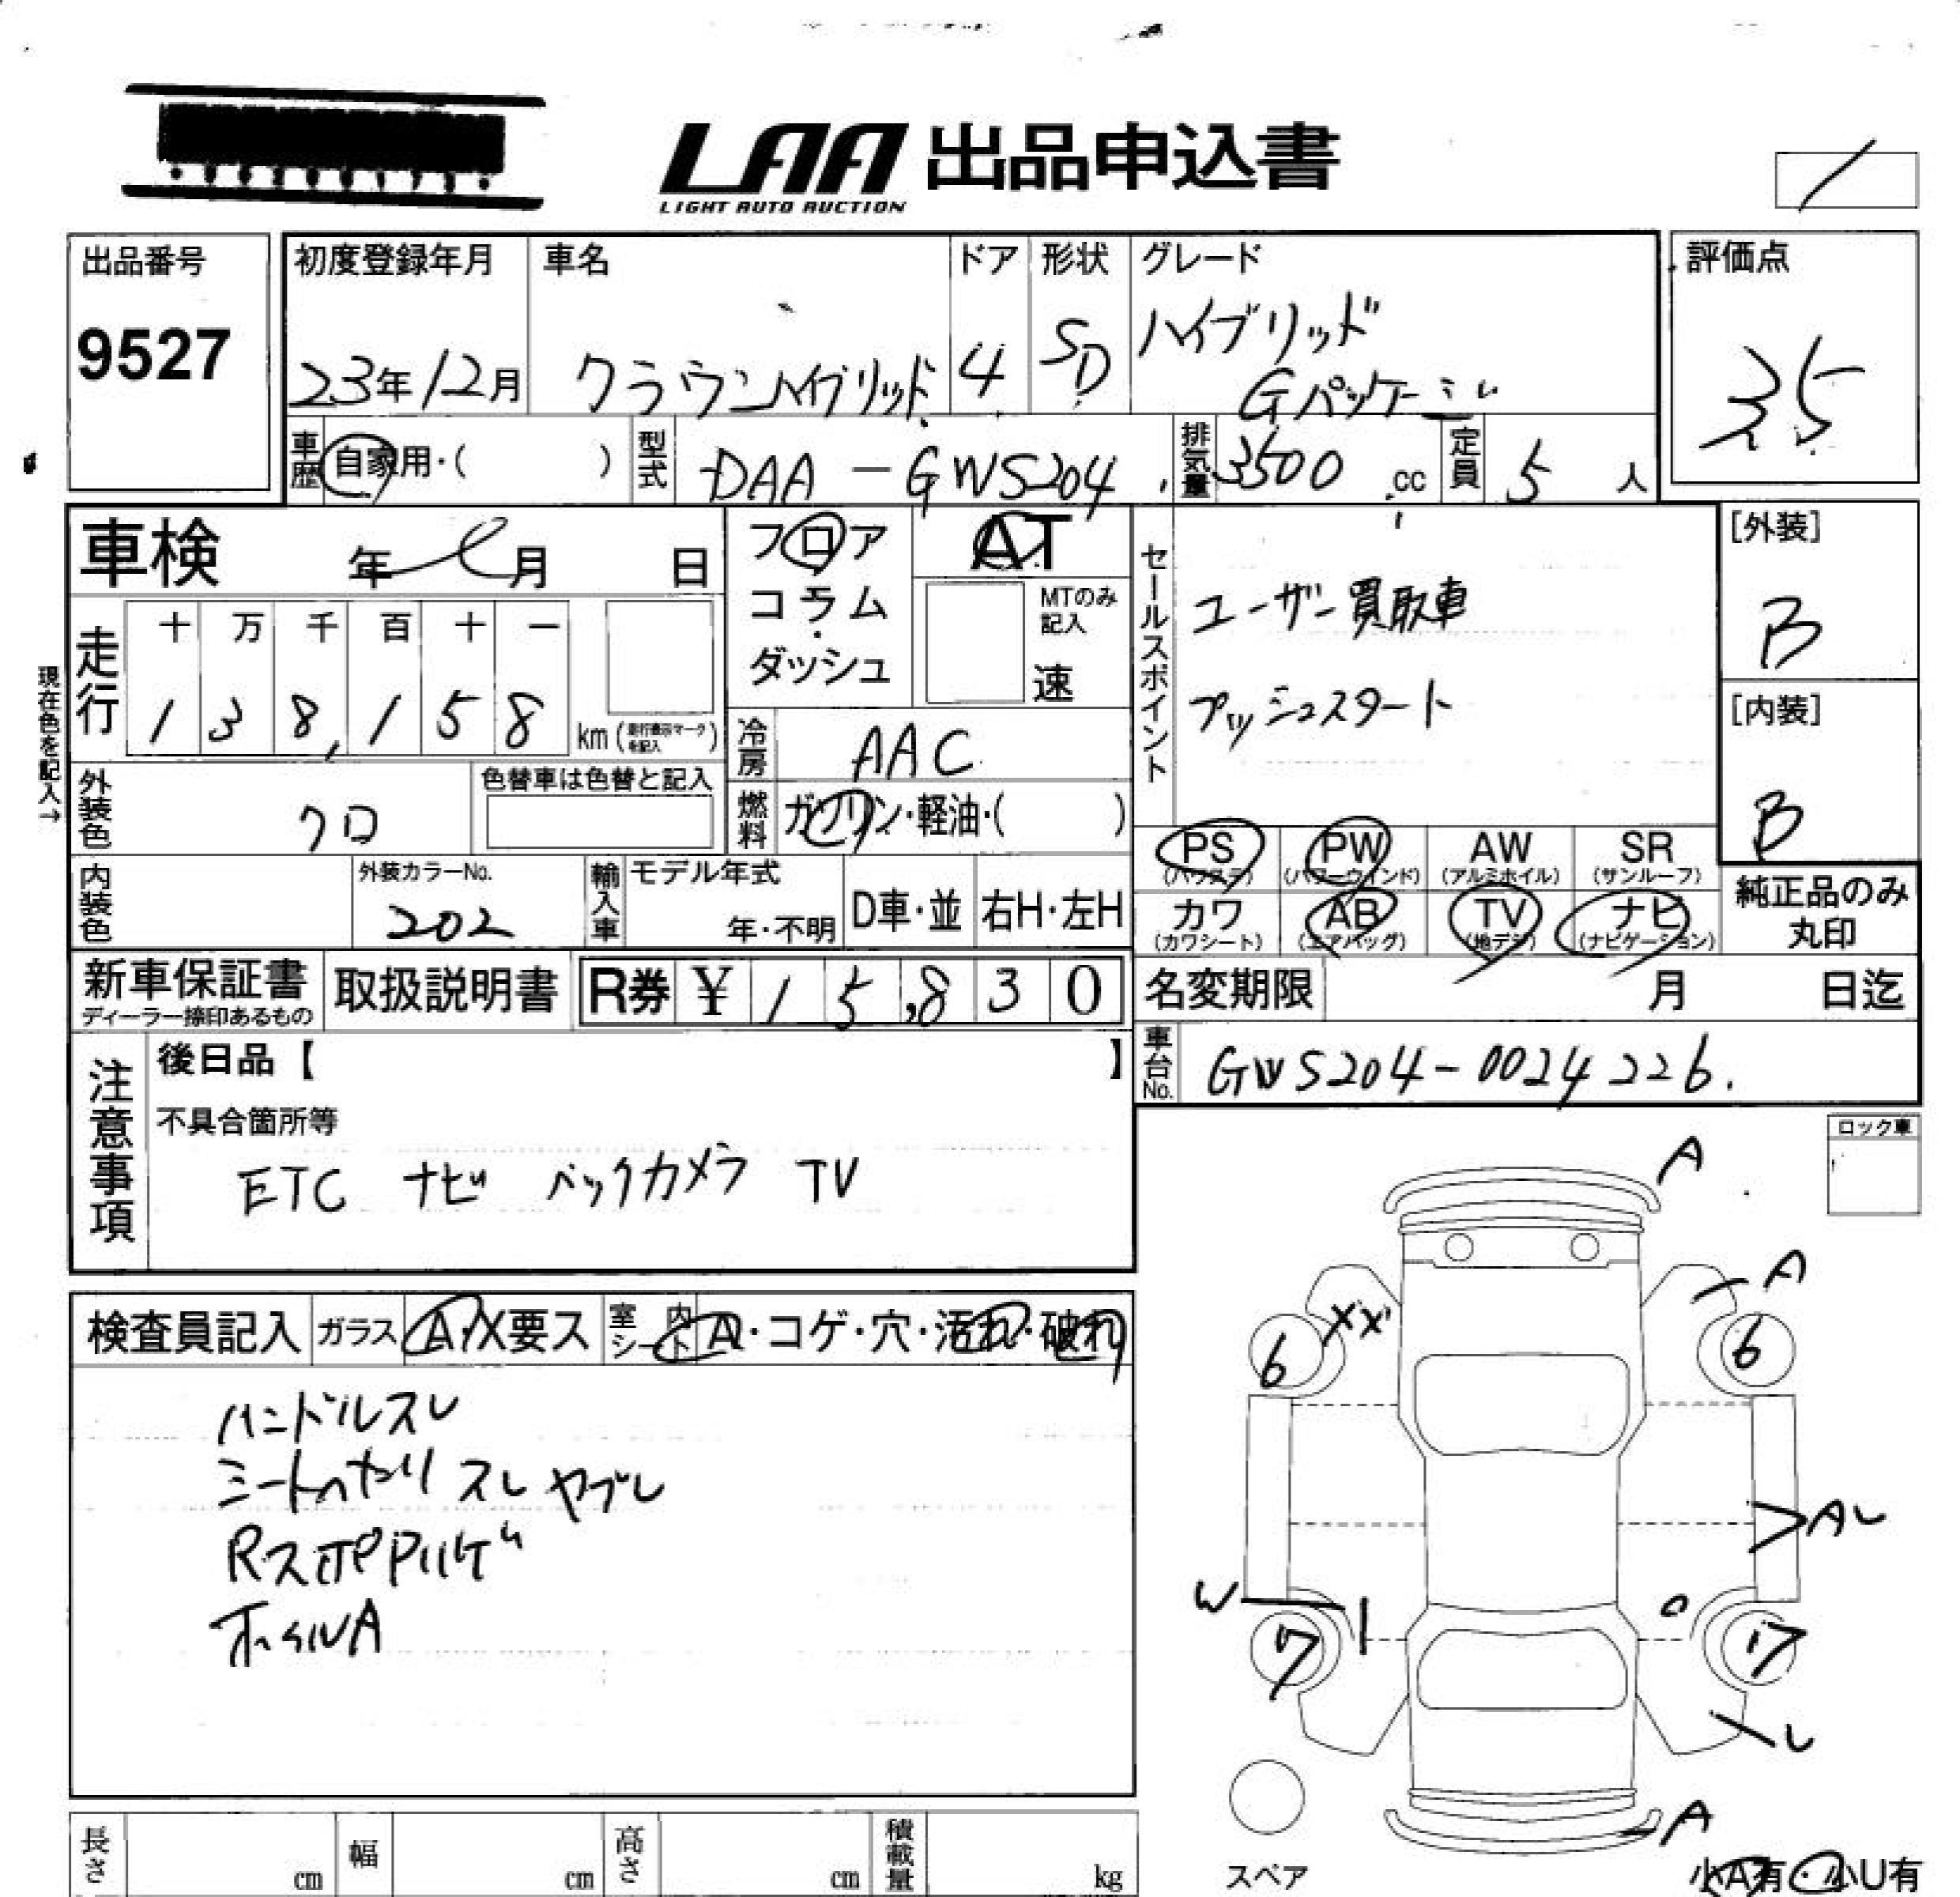 LAA 出品申込書
LIGHT AUTO AUCTION
出品番号
9527
初度登録年月
23年12月
車名
クラウンハイブリッド
ドア
4
形状
SD
グレード
ハイブリッド
Gパッケージ
評価点
3.5
車歴 自家用・( )
型式 DAA-GWS204
排気量 3500 cc
定員 5 人
車検 年 月 日
フロア
コラム
ダッシュ
AT
MTのみ
記入
速
セールスポイント
ユーザー買取車
プッシュスタート
[外装]
B
[内装]
B
現在色を記入→
走行
十 万 千 百 十 一
1 3 8,1 5 8 km
冷房 AAC
外装色 クロ
色替車は色替と記入
燃料 ガソリン・軽油・( )
PS (パワステ)
PW (パワーウインド)
AW (アルミホイル)
SR (サンルーフ)
カワ (カワシート)
AB (エアバッグ)
TV (地デジ)
ナビ (ナビゲーション)
純正品のみ
丸印
内装色
外装カラーNo.
202
輸入車
モデル年式
年・不明
D車・並
右H・左H
新車保証書
ディーラー捺印あるもの
取扱説明書
R券 ¥ 15,830
名変期限 月 日迄
車台No. GWS204-0024226.
注意事項
後日品【 】
不具合箇所等
ETC ナビ バックカメラ TV
ロック車
検査員記入
ガラス A・X要ス
室内シート A・コゲ・穴・汚れ・破れ
ハンドルスレ
シートヘタリ スレ ヤブレ
ホイルA
A
A
XX
6
6
AL
W
7
7
L
A
スペア
小A有・小U有
長さ cm
幅 cm
高さ cm
積載量 kg